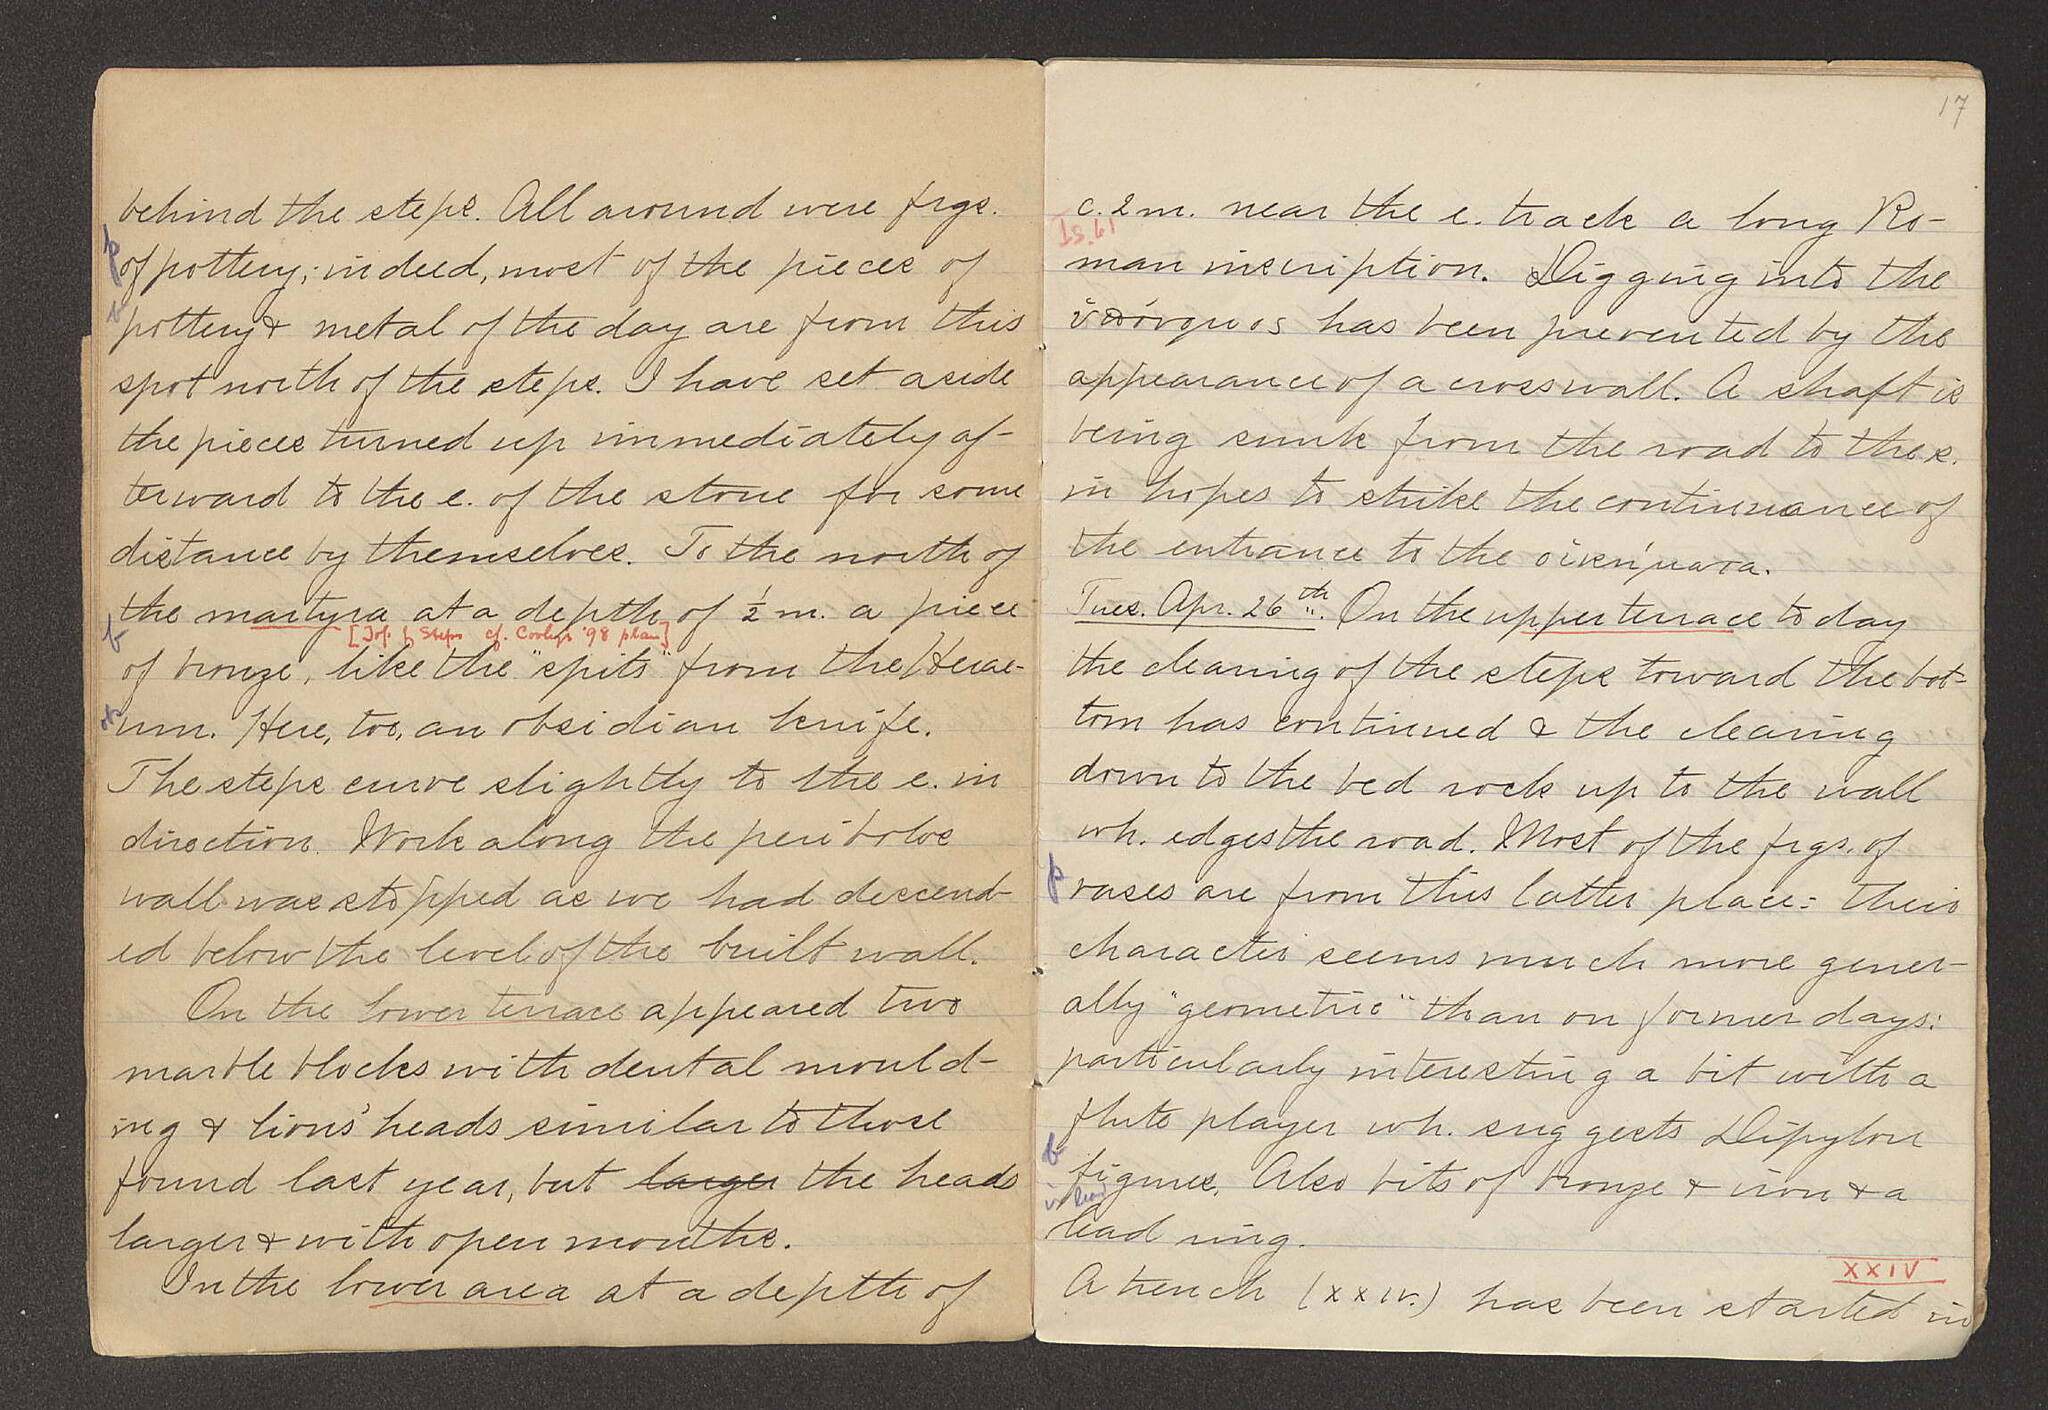 behind the steps. All around were frgs.
p
of pottery; indeed, most of the pieces of
b
pottery & metal of the day are from this
spot north of the steps. I have set aside
the pieces turned up immediately af-
terward to the e. of the stone for some
distance by themselves. To the north of
the martyra at a depth of ½ m. a piece
[Top of Steps cf. Cooley's '98 plan]
b
of bronze, like the "spits" from the Herae-
um. Here, too, an obsidian knife.
The steps curve slightly to the e. in
direction. Work along the peribolos
wall was stopped as we had descend-
ed below the level of the built wall.
On the lower terrace appeared two
marble blocks with dental mould-
ing & lions' heads similar to those
found last year, but larger the heads
larger & with open mouths.
In the lower area at a depth of
17
c. 2 m. near the e. track a long Ro-
IS. 61
man inscription. Digging into the
ὑπόνομος has been prevented by the
appearance of a cross wall. A shaft is
being sunk from the road to the s.
in hopes to strike the continuance of
the entrance to the οἰκήματα.
Tues. Apr. 26th. On the upper terrace to day
the clearing of the steps toward the bot-
tom has continued & the clearing
down to the bed rock up to the wall
wh. edges the road. Most of the frgs. of
p
vases are from this latter place: their
character seems much more gener-
ally "geometric" than on former days:
particularly interesting a bit with a
flute player wh. suggests Dipylon
b
figures. Also bits of bronze & iron & a
i lead
lead ring.
XXIV
A trench (XXIV.) has been started in